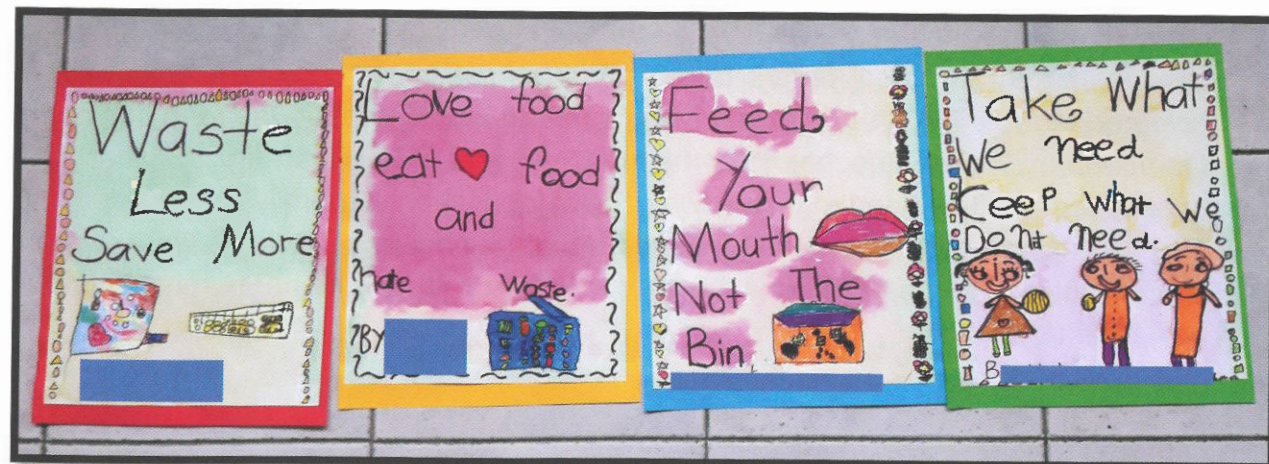 Waste
Less
Save More
Love food
eat food
and
hate Waste.
BY
Feed
Your
Mouth
Not The
Bin.
Take What
We need
Ceep what we
Don't need.
B